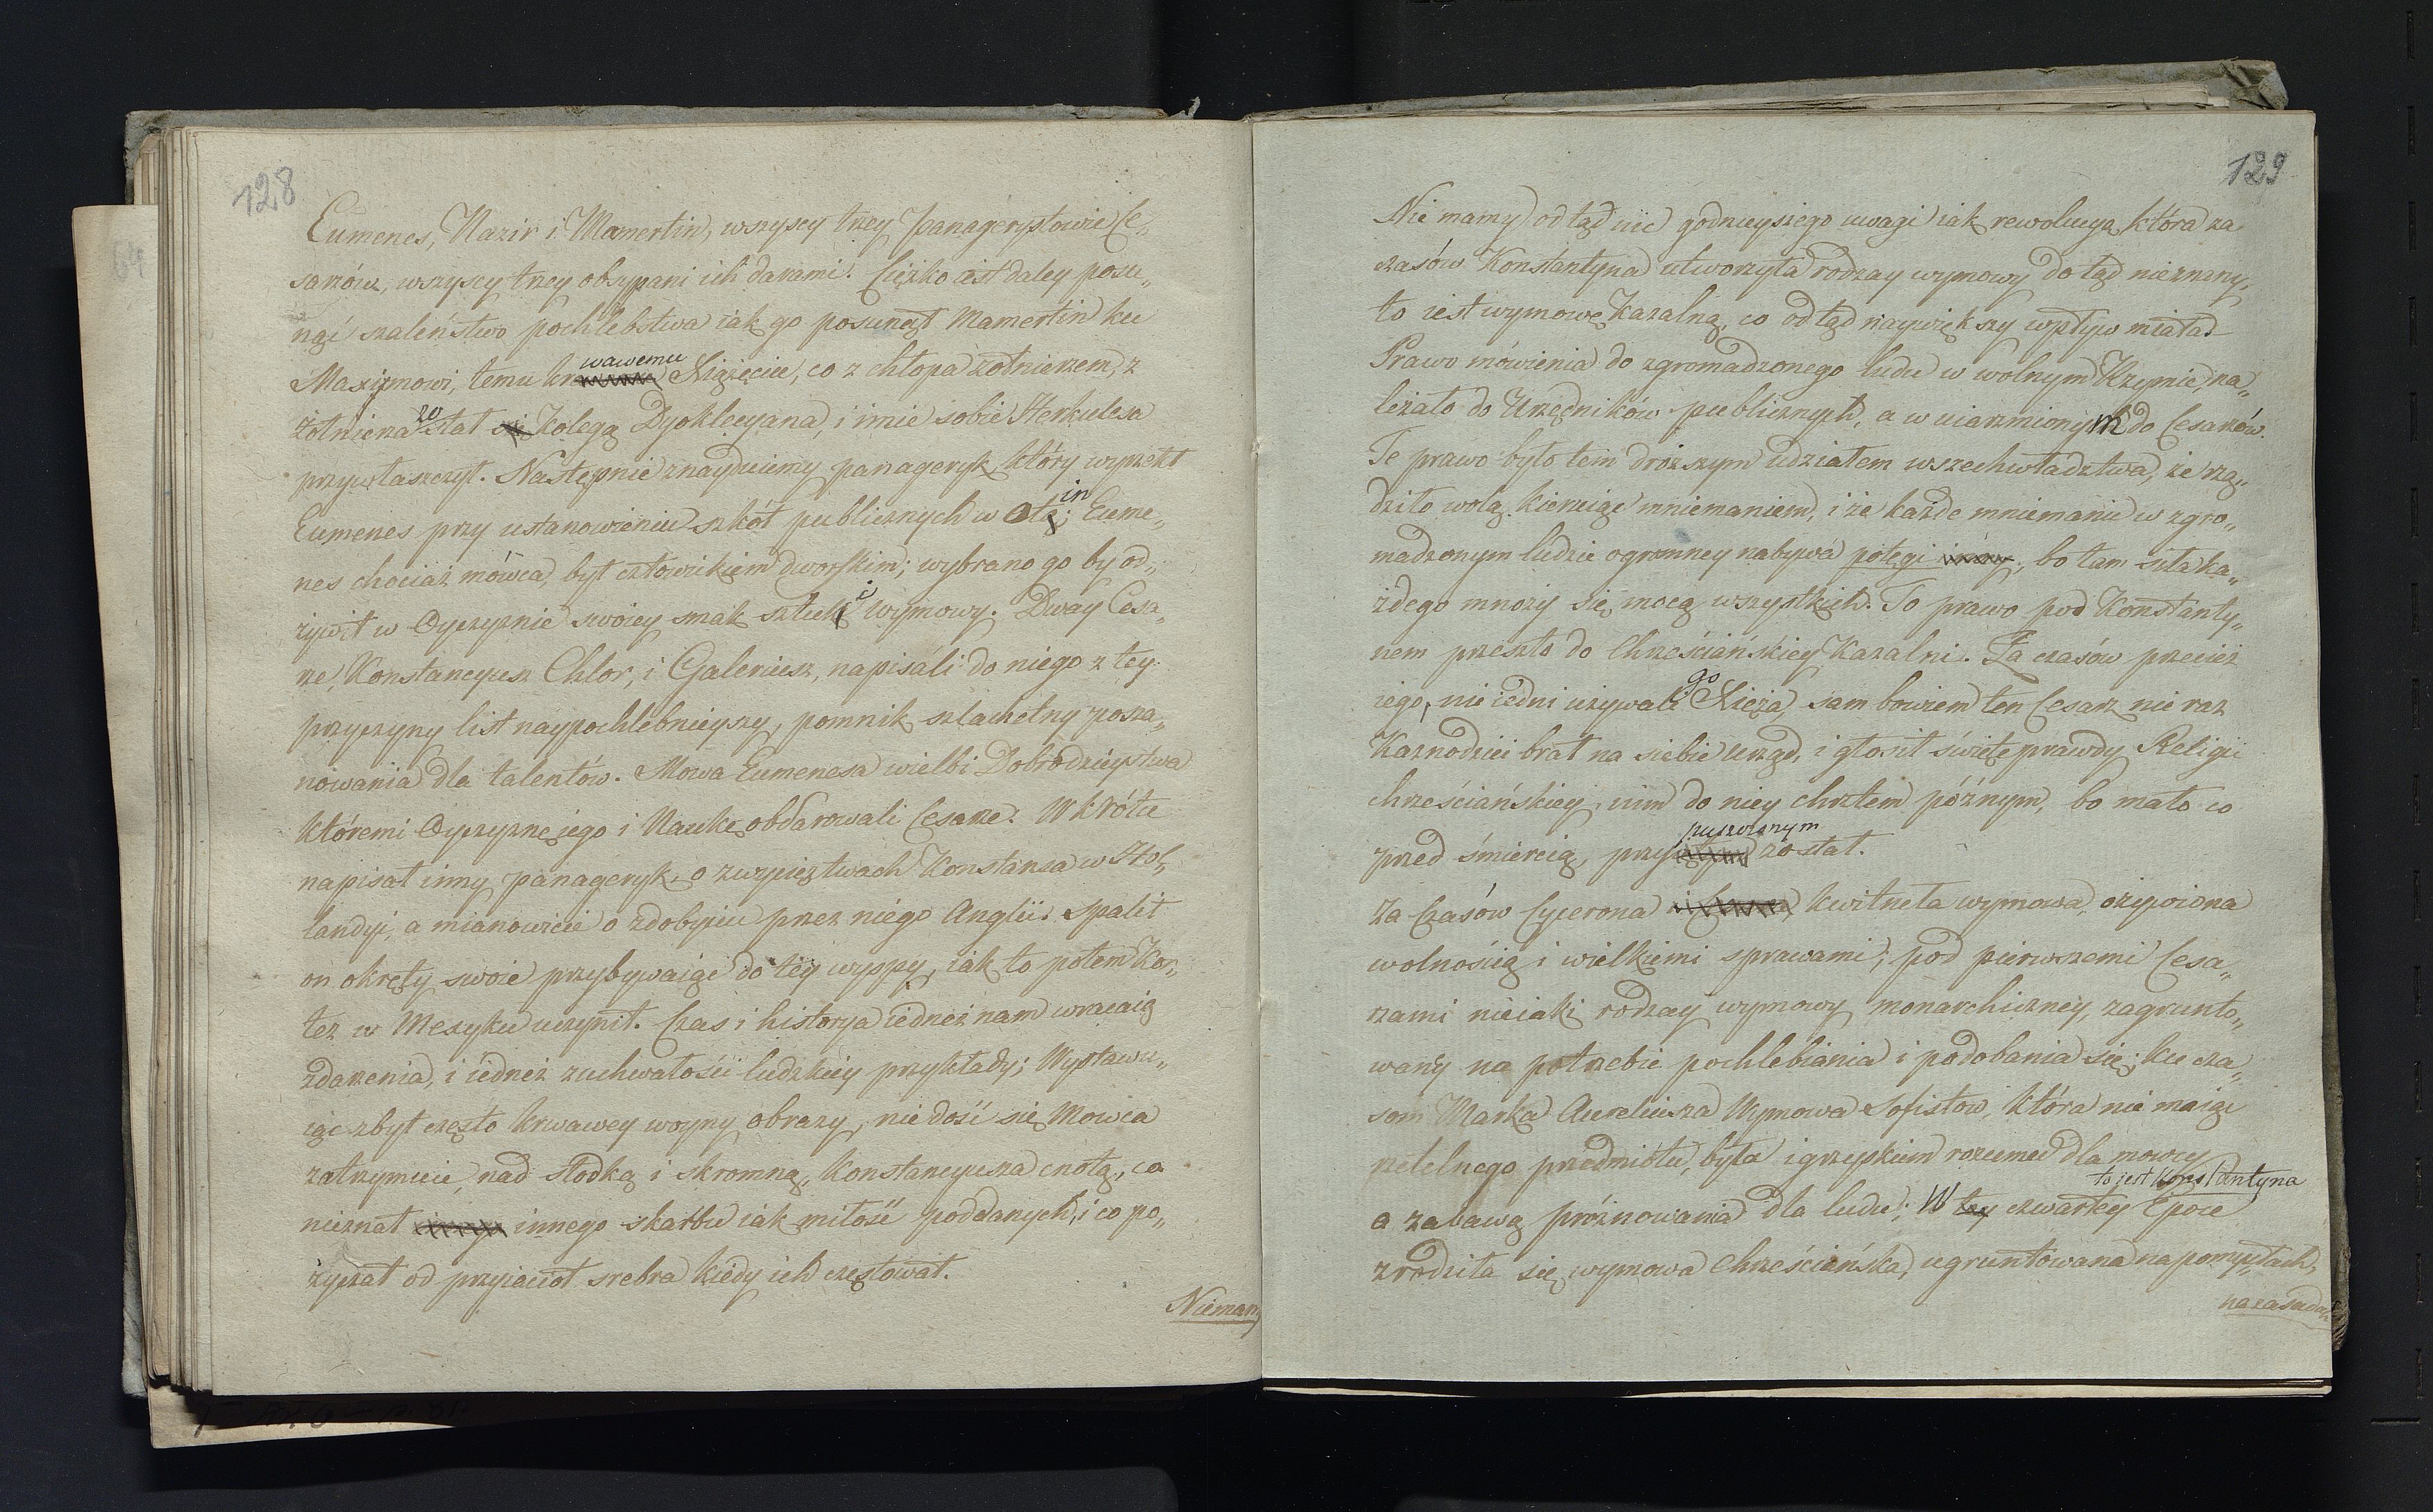 128
Eumenes, Nazir i Mamertin, wszyscy trzey panagerystowie Ce„
sarzów, wszyscy trzey obsypani ich darami. Ciężko iest daley posu„
nąć szaleństwo pochlebstwa iak go posunął Mamertin ku
Maxymowi, temu krwawemu Xiążęciu, co z chłopa żołnierzem, z
żołnierza został kolegą Dyoklecyana, i imie sobie Herkulesa
przywłaszczył. Następnie znayduiemy panageryk który wyrzekł
Eumenes przy ustanowieniu szkół publicznych w Eume„
nes chociaż mówca, był człowiekiem dworskim; wybrano go by od„
żywił w Oyczyznie swoiey smak sztuki wymowy. Dway Cesa„
rze, Konstancyusz Chlor, i Galeriusz, napisáli do niego z tey
przyczyny list naypochlebnieyszy, pomnik szlachetny posza„
nowania dla talentów. Mowa Eumenesa wielbi Dobrodzieystwa
któremi Oyczyznę jego i Nauki obdarowali Cesarze. Wkrótce
napisał inny panageryk, o zwycięztwach Konstansa w Hol„
landyi, a mianowicie o zdobyciu przez niego Anglii. Spalił
on okręty swoie przybywaiąc do tey wyspy, iak to potem Kor„
tez w Mexyku uczynił. Czas i historya iedneż nam wracaią
zdarzenia, i iedneż zuchwałości ludzkiey przykłady; Wystawu„
iąc zbyt często krwawey woyny obrazy, nie dość się Mowca
zatrzymuie, nad słodką i skromną, Konstancyusza cnotą, co
nieznał innego skarbu iak miłość poddanych, i co po„
życzał od przyiaciół srebra kiedy ich częstował.
Niemamy
129
Nie mamy odtąd nic godnieyszego uwagi iak rewolucya, która za
czasów Konstantyna utworzyła rodzay wymowy dotąd nieznany,
to iest wymowę kazalną, co odtąd naywiększy wpływ miała.
Prawo mówienia do zgromadzonego ludu w wolnym Rzymie, na„
leżało do Urzędników publicznych, a w uiarzmionym do Cesarzów.
Te prawo było tem droższym udziałem wszechwładztwa, że rzą„
dziło wolą, kieruiąc mniemaniem, i że każde mniemanie w zgro„
madzonym ludzie ogromney nabywa potęgi, bo tam siła ka„
żdego mnoży się mocą wszystkich. To prawo pod Konstanty„
nem przeszło do Chrześciańskiey Kazalni. Za czasów przecież
iego, nie iedni używali go Xięża, sam bowiem ten Cesarz nie raz
Kaznodziei brał na siebie urząd, i głosił święte prawdy Religii
chrześciańskiey, nim do niey chrztem późnym, bo mało co
przed śmiercią, przypuszczonym został.
Za Czasów Cycerona kwitnęła wymowa, ożywiona
wolnością i wielkiemi sprawami; pod pierwszemi Cesa„
rzami nieiaki rodzay wymowy monarchiczney, zagrunto„
wany na potrzebie pochlebiania i podobania się; ku cza„
som Marka Aureliusza Wymowa Sofistow, która nie maiąc
rzetelnego przedmiotu, była igrzyskiem rozumu dla mowcy
a zabawą próżnowania dla ludu; W tey czwartey Epoce to jest Konstantyna
zrodziła się wymowa chrześciańska, ugruntowana na pomysłach,
na zasadach